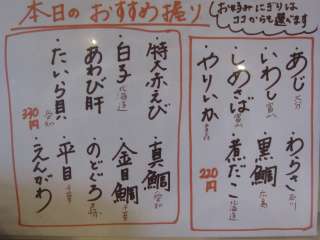 本日のおすすめ握り
お好みにぎりは
ココからも選べます
・あじ 大分
・いわし
・しめさば
・やりいか
・わらさ 石川
・黒鯛 広島
・煮だこ 北海道
220円
・特大赤えび
・白子 北海道
・あわび肝
・たいら貝 愛知
・真鯛 愛知
・金目鯛 千葉
・のどぐろ
・平目 千葉
・えんがわ
330円